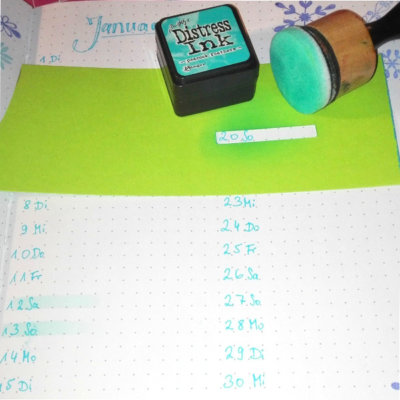 Janua
1 Di
Distress
Ink
20 So
8 Di
9 Mi
10 Do
11 Fr
12 Sa
13 So
14 Mo
15 Di
23 Mi
24 Do
25 Fr
26 Sa
27 So
28 Mo
29 Di
30 Mi